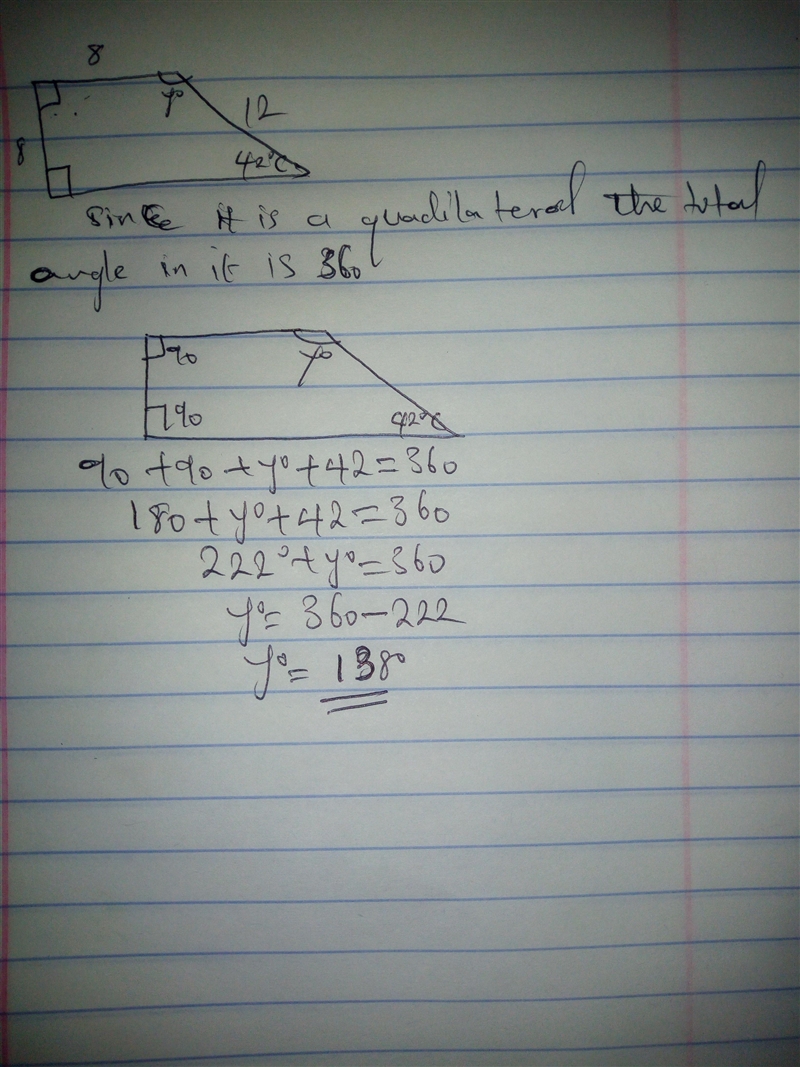 8
y°
12
8
42°C
Since it is a quadilateral the total
angle in it is 360
90
y°
90
42°C
90 + 90 + y° + 42 = 360
180 + y° + 42 = 360
222° + y° = 360
y° = 360 - 222
y° = 138°